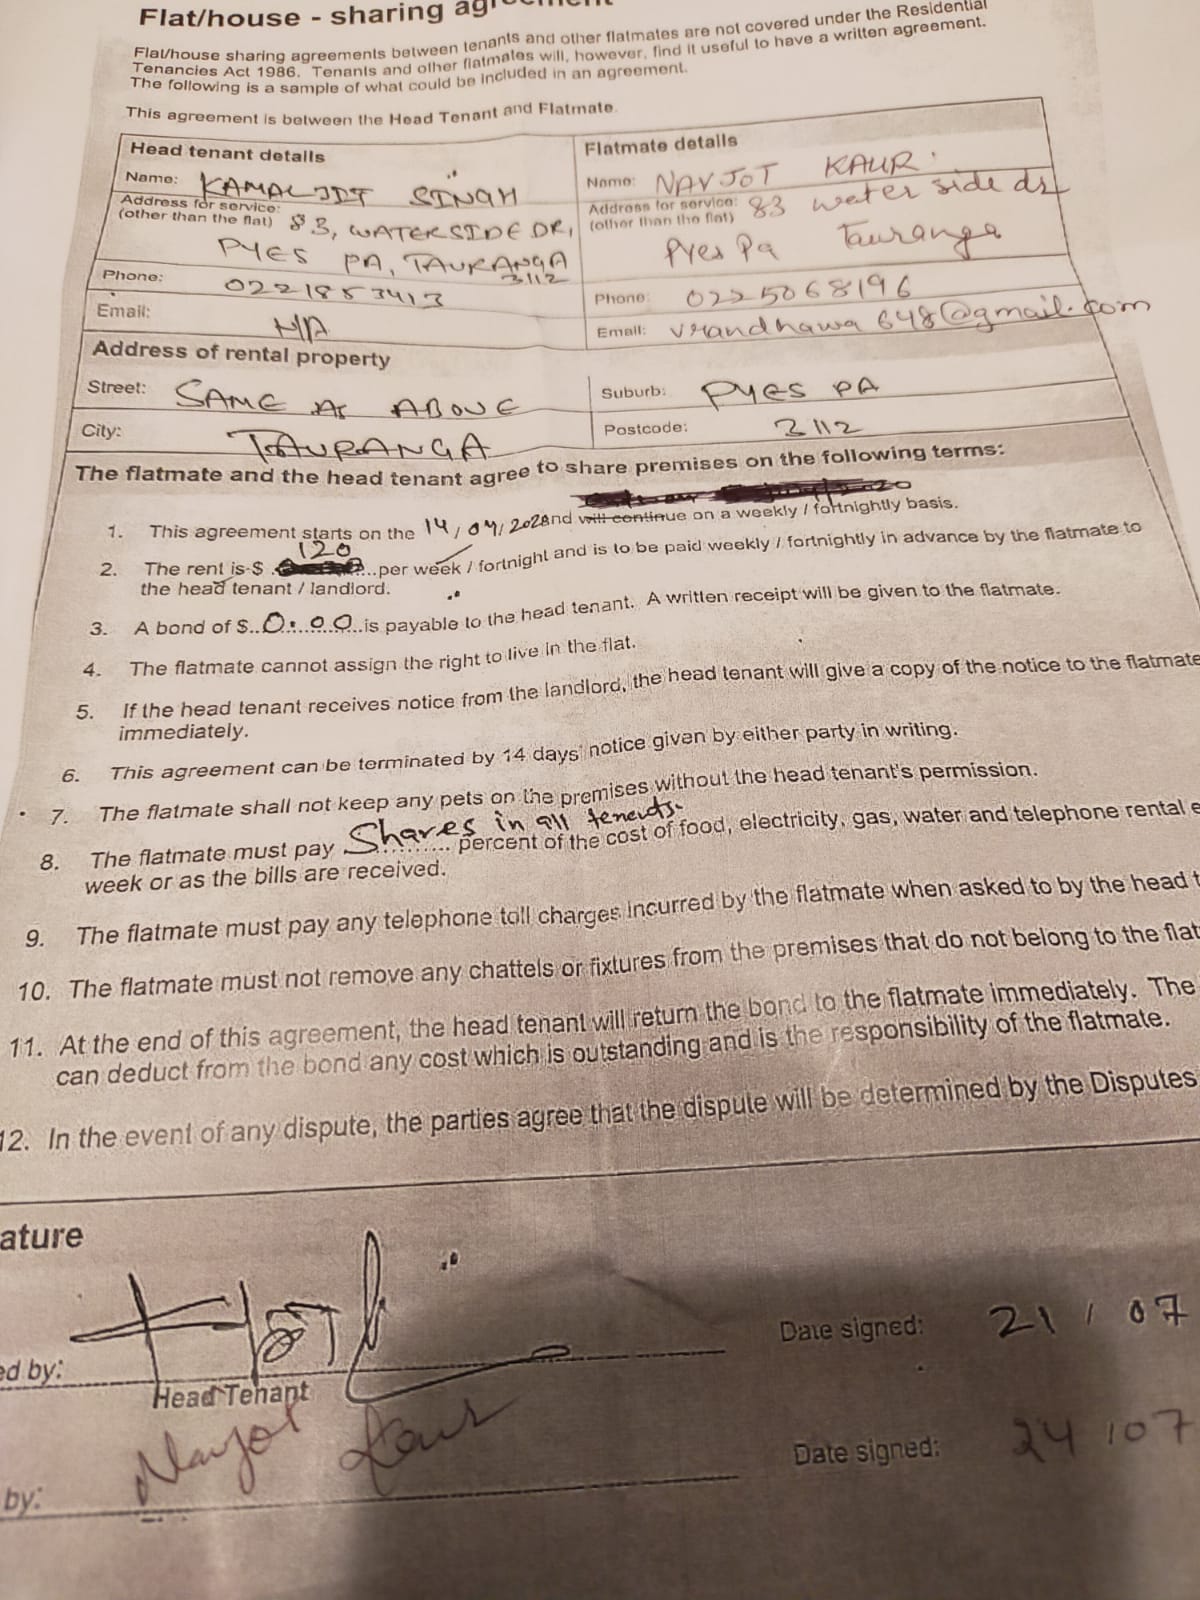 Flat/house - sharing agreement
Flat/house sharing agreements between tenants and other flatmates are not covered under the Residential
Tenancies Act 1986. Tenants and other flatmates will, however, find it useful to have a written agreement.
The following is a sample of what could be included in an agreement.
This agreement is between the Head Tenant and Flatmate.
Head tenant details
Name: KAMALJIT SINGH
Address for service: 83, WATERSIDE DR,
(other than the flat)
PYES PA, TAURANGA
3112
Phone: 0221853413
Email: N/A
Flatmate details
Name: NAVJOT KAUR
Address for service: 83 water side dr
(other than the flat)
Pyes Pa Tauranga
Phone: 0225068196
Email: vrandhawa648@gmail.com
Address of rental property
Street: SAME AS ABOVE
Suburb: PYES PA
City: TAURANGA
Postcode: 3112
The flatmate and the head tenant agree to share premises on the following terms:
1. This agreement starts on the 14/07/2020 and will continue on a weekly / fortnightly basis.
120
2. The rent is $ ...per week / fortnight and is to be paid weekly / fortnightly in advance by the flatmate to
the head tenant / landlord.
3. A bond of $..0.00..is payable to the head tenant. A written receipt will be given to the flatmate.
4. The flatmate cannot assign the right to live in the flat.
5. If the head tenant receives notice from the landlord, the head tenant will give a copy of the notice to the flatmate
immediately.
6. This agreement can be terminated by 14 days' notice given by either party in writing.
7. The flatmate shall not keep any pets on the premises without the head tenant's permission.
8. The flatmate must pay Shares in all tenents. percent of the cost of food, electricity, gas, water and telephone rental e
week or as the bills are received.
9. The flatmate must pay any telephone toll charges incurred by the flatmate when asked to by the head t
10. The flatmate must not remove any chattels or fixtures from the premises that do not belong to the flat
11. At the end of this agreement, the head tenant will return the bond to the flatmate immediately. The
can deduct from the bond any cost which is outstanding and is the responsibility of the flatmate.
12. In the event of any dispute, the parties agree that the dispute will be determined by the Disputes
ature
ed by:
Date signed: 21/07
Head Tenant
by: Navjot Kaur
Date signed: 24/07